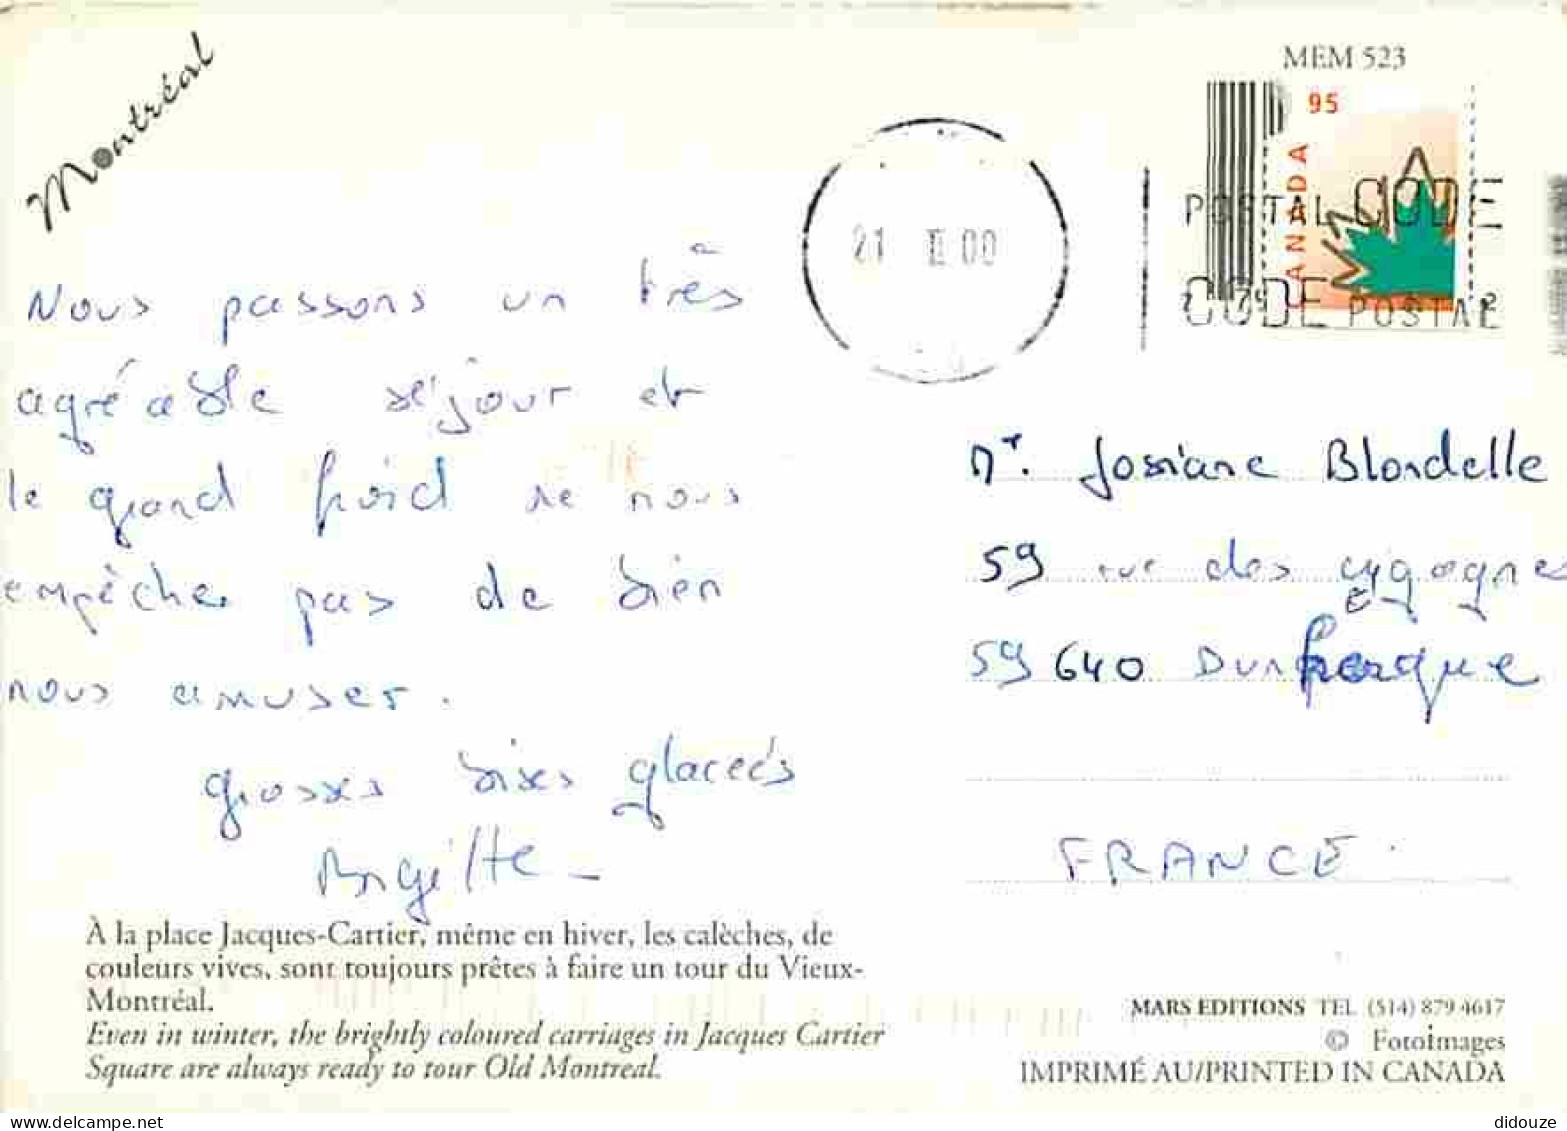 Montréal
MEM 523
95
CANADA
21 II 00
POSTAL CODE
CODE POSTAL
Nous passons un très
agréable séjour et
le grand froid ne nous
empêche pas de bien
nous amuser.
grosses bises glacées
Brigitte
Josiane Blondelle
59 rue des cygognes
59 640 Dunkerque
FRANCE
À la place Jacques-Cartier, même en hiver, les calèches, de
couleurs vives, sont toujours prêtes à faire un tour du Vieux-
Montréal.
Even in winter, the brightly coloured carriages in Jacques Cartier
Square are always ready to tour Old Montreal.
MARS EDITIONS TEL (514) 879 4617
© FotoImages
IMPRIMÉ AU/PRINTED IN CANADA
didouze